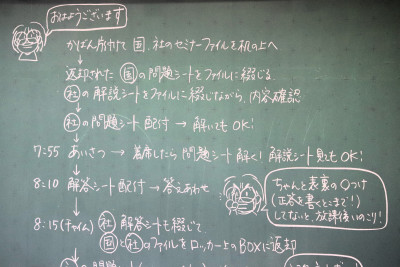 おはようございます
かばん片付けて 国、社のセミナーファイルを机の上へ
返却された 国の問題シートをファイルに綴じる
社の解説シートをファイルに綴じながら、内容確認
社の問題シート 配付 → 解いてもOK!
7:55 あいさつ → 着席したら 問題シート 解く! 解説シート見てもOK!
8:10 解答シート配付 → 答えあわせ
ちゃんと表裏の○つけ
(正答を書くとこまで!)
してないと、放課後いのこり!
8:15(チャイム) 社 解答シートも綴じて
国と社のファイルをロッカー上のBOXに返却